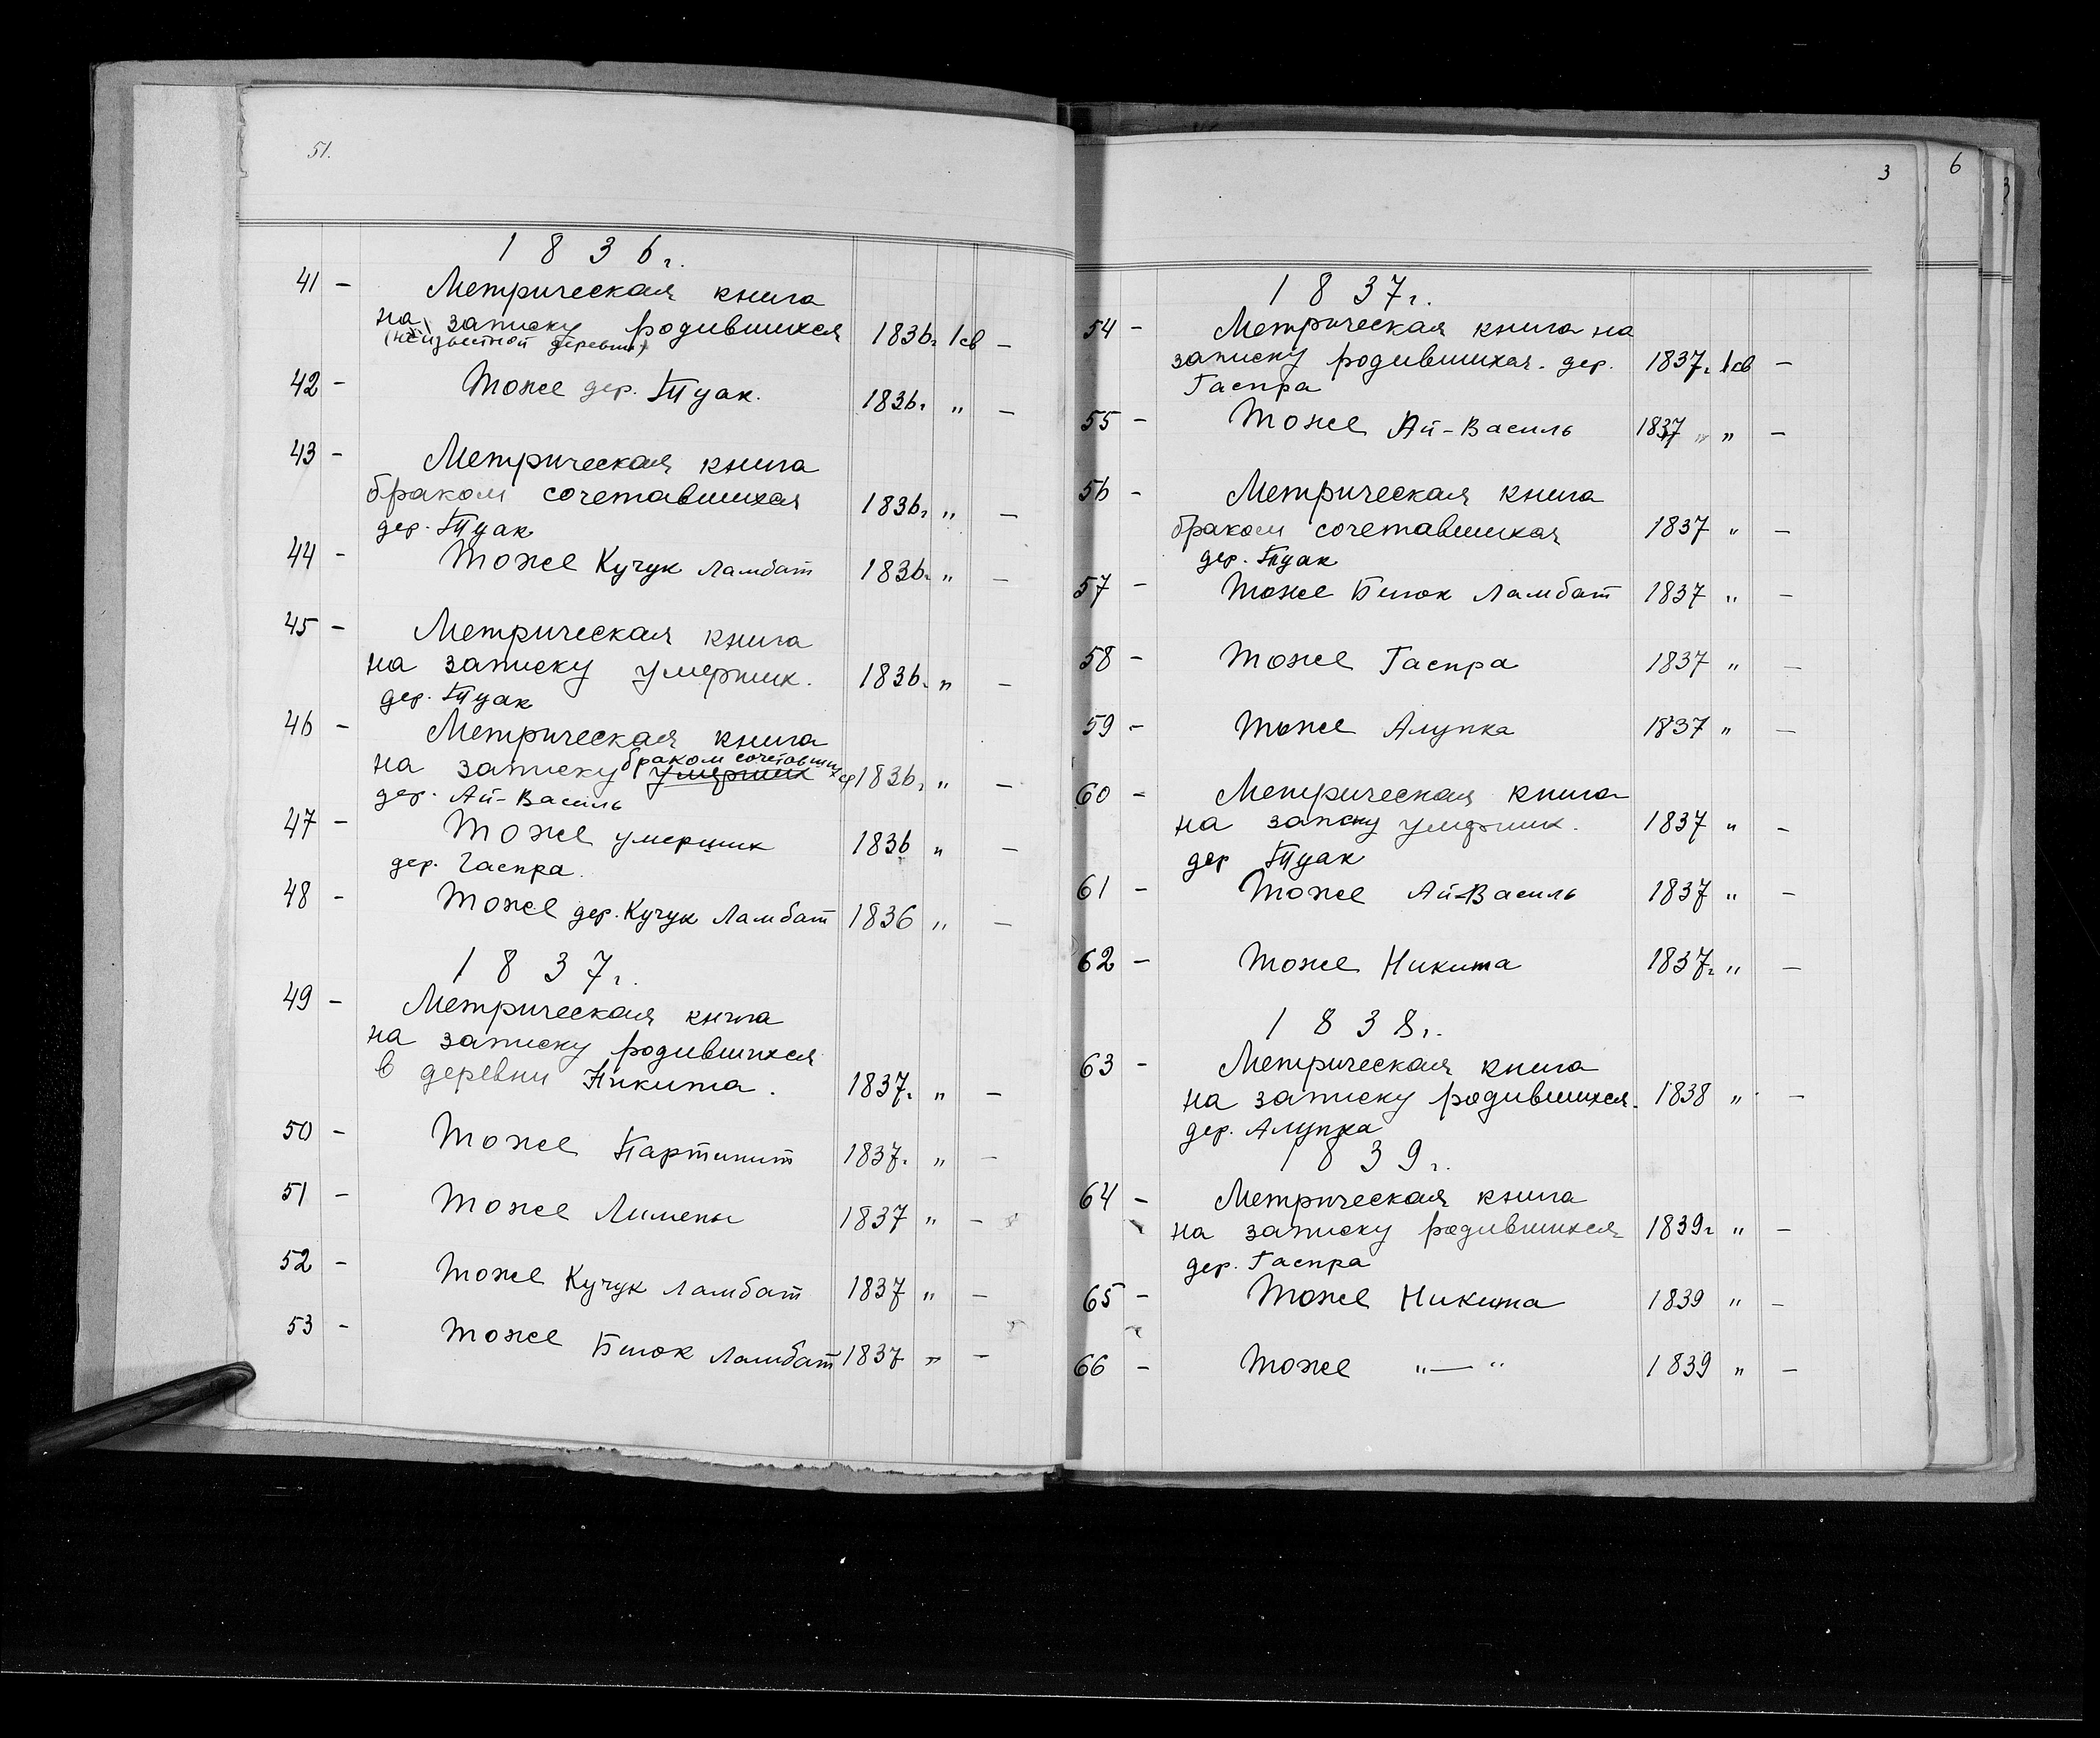 51.
1836г.
41 - Метрическая книга
на записку родившихся 1836г. 1св -
(неизвестной деревни)
42 - Тоже дер. Туак. 1836г. " -
43 - Метрическая книга
браком сочетавшихся 1836г " -
дер. Туак
44 - Тоже Кучук Ламбат 1836г. " -
45 - Метрическая книга
на записку умерших. 1836г. " -
дер. Туак
46 - Метрическая книга
браком сочетавшихся
на записку умерших 1836г. " -
дер. Ай-Василь
47 - Тоже умерших 1836 " -
дер. Гаспра.
48 - Тоже дер. Кучук Ламбат 1836 " -
1837г.
49 - Метрическая книга
на записку родившихся
в деревни Никита. 1837г. " -
50 - Тоже Партинит 1837г. " -
51 - Тоже Лимены 1837 " -
52 - Тоже Кучук Ламбат 1837 " -
53 - Тоже Биюк Ламбат 1837 " -
3
6
1837г.
54 - Метрическая книга на
записку родившихся. дер. 1837г. 1св -
Гаспра
55 - Тоже Ай-Василь 1837 " " -
56 - Метрическая книга
браком сочетавшихся 1837 " -
дер. Туак
57 - Тоже Биюк Ламбат 1837 " -
58 - Тоже Гаспра 1837 " -
59 - Тоже Алупка 1837 " -
60 - Метрическая книга
на запску умерших. 1837 " -
дер Туак
61 - Тоже Ай-Василь 1837 " -
62 - Тоже Никита 1837г. " -
1838г.
63 - Метрическая книга
на записку родившихся. 1838 " -
дер. Алупка
1839г.
64 - Метрическая книга
на записку родившихся 1839г " -
дер. Гаспра
65 - Тоже Никита 1839 " -
66 - Тоже "—" 1839 " -